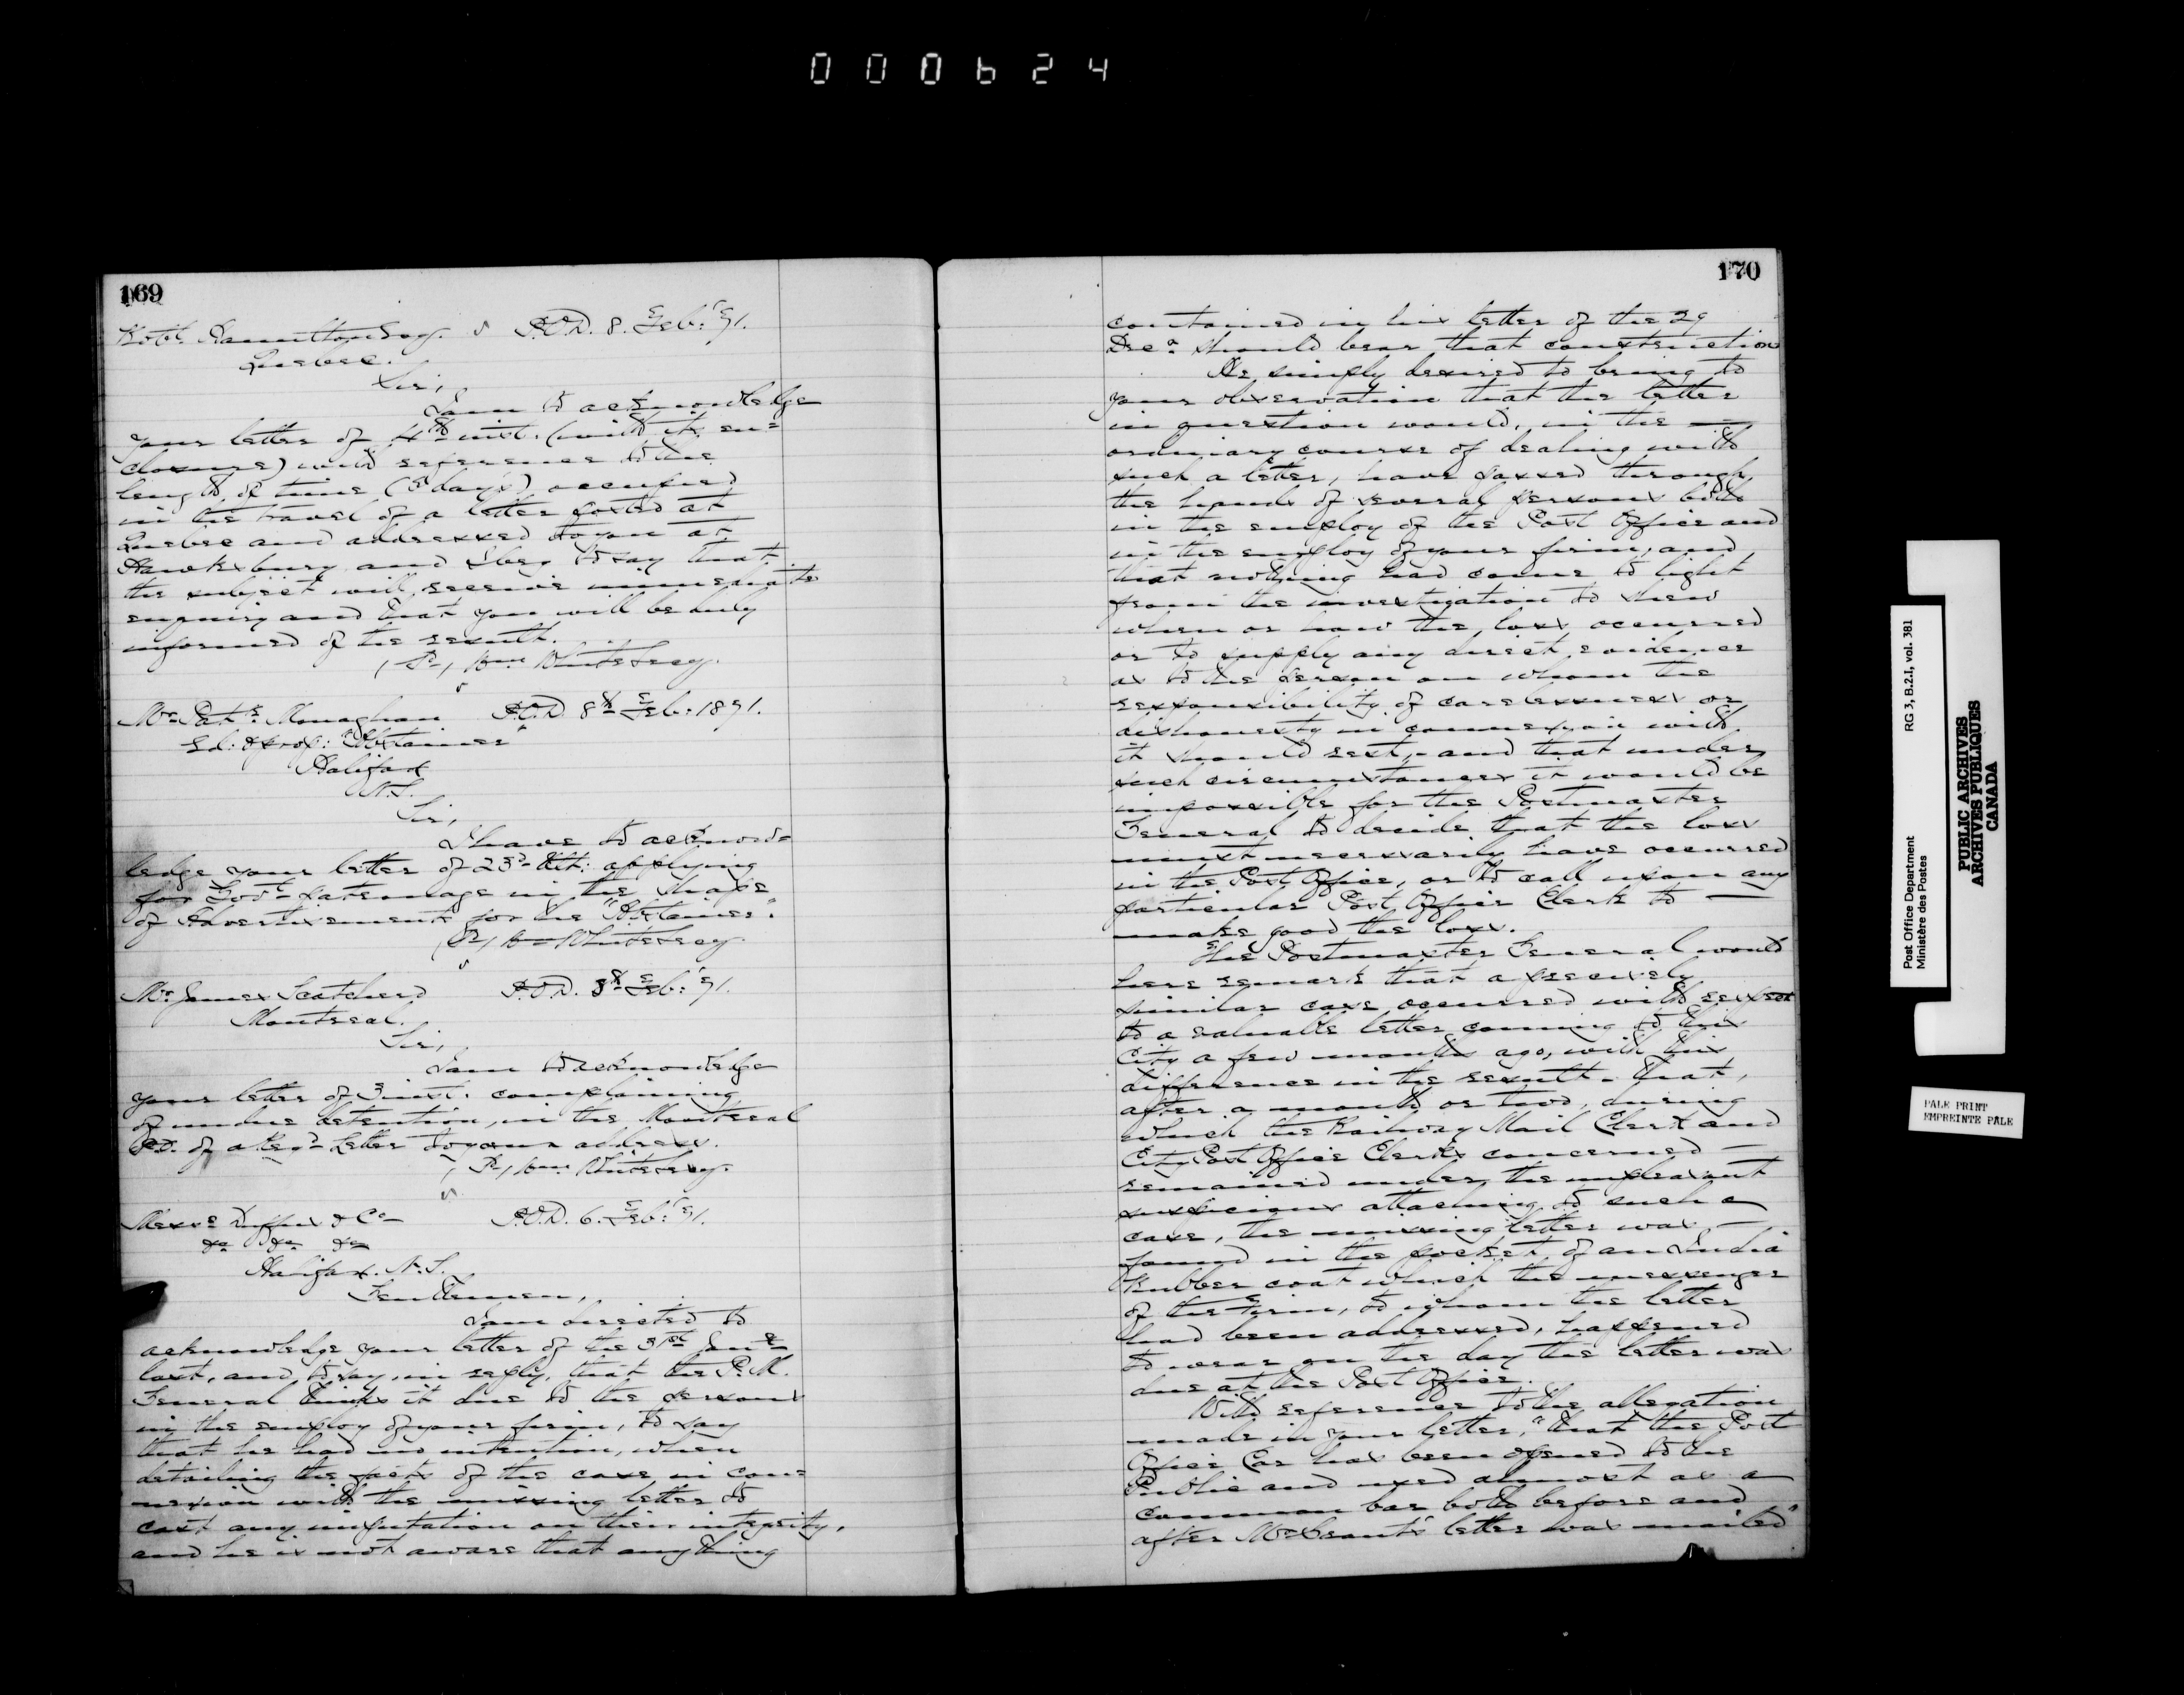 000624
169
Robt. Hamilton Esq. P.O.D. 8. Feb: '71.
Quebec.
Sir,
I am to acknowledge
your letter of 4th inst. (with its en=
closure) with reference to the
length of time (5 days) occupied
in the travel of a letter posted at
Quebec and addressed to you at
Hawkesbury and I beg to say that
the subject will receive immediate
enquiry and that you will be duly
informed of the result.
Wm. White Secy.
Mr. Patk. Monaghan P.O.D. 8th Feb: 1871.
Ed: & prop: "Abstainer"
Halifax
N.S.
Sir,
I have to acknow=
ledge your letter of 23d Ult: applying
for Govt. patronage in the shape
of Advertisements for the "Abstainer".
Wm. White Secy.
Mr. James Scatcherd P.O.D. 8th Feb: '71.
Montreal.
Sir,
I am to acknowledge
your letter of 3 inst. complaining
of undue detention, in the Montreal
P.O. of a Regd. Letter to your address.
Wm. White Secy.
Messrs Duffus & Co. P.O.D. 6. Feb: '71.
&c &c &c
Halifax. N.S.
Gentlemen,
I am directed to
acknowledge your letter of the 31st Jany.
last, and, to say, in reply, that the P.M.
General thinks it due to the persons
in the employ of your firm, to say
that he had no intention, when
detailing the facts of the case in con=
nexion with the missing letter to
cast any imputation on their integrity,
and he is not aware that anything
170
contained in his letter of the 29
Decr. should bear that construction
He simply desired to bring to
your observation that the letter
in question would, in the
ordinary course of dealing with
such a letter, have passed through
the hands of several persons both
in the employ of the Post Office and
in the employ of your firm, and
that nothing had come to light
from the investigation to shew
when or how the loss occurred
or to supply any direct evidence
as to the person on whom the
responsibility of carelessness or
dishonesty in connexion with
it should rest, - and that under
such circumstances it would be
impossible for the Postmaster
General to decide that the loss
must necessarily have occurred
in the Post Office, or to call upon any
particular Post Office Clerk to
make good the loss.
The Postmaster General would
here remark that a precisely
similar case occurred with respect
to a valuable letter coming to this
City a few months ago, with this
difference in the result - that,
after a month or two, during
which the Railway Mail Clerk and
City Post Office Clerks concerned
remained under the unpleasant
suspicions attaching to such a
case, the missing letter was
found in the pocket of an India
Rubber coat which the messenger
of the Firm, to whom the letter
had been addressed, happened
to wear on the day the letter was
due at the Post Office.
With reference to the allegation
made in your letter, "that the Post
Office Car has been opened to the
Public and used almost as a
common bar both before and
after Mr. Grant's letter was mailed"
Post Office Department
Ministère des Postes
RG 3, B.2.1, vol. 381
PUBLIC ARCHIVES
ARCHIVES PUBLIQUES
CANADA
PALE PRINT
EMPREINTE PÂLE